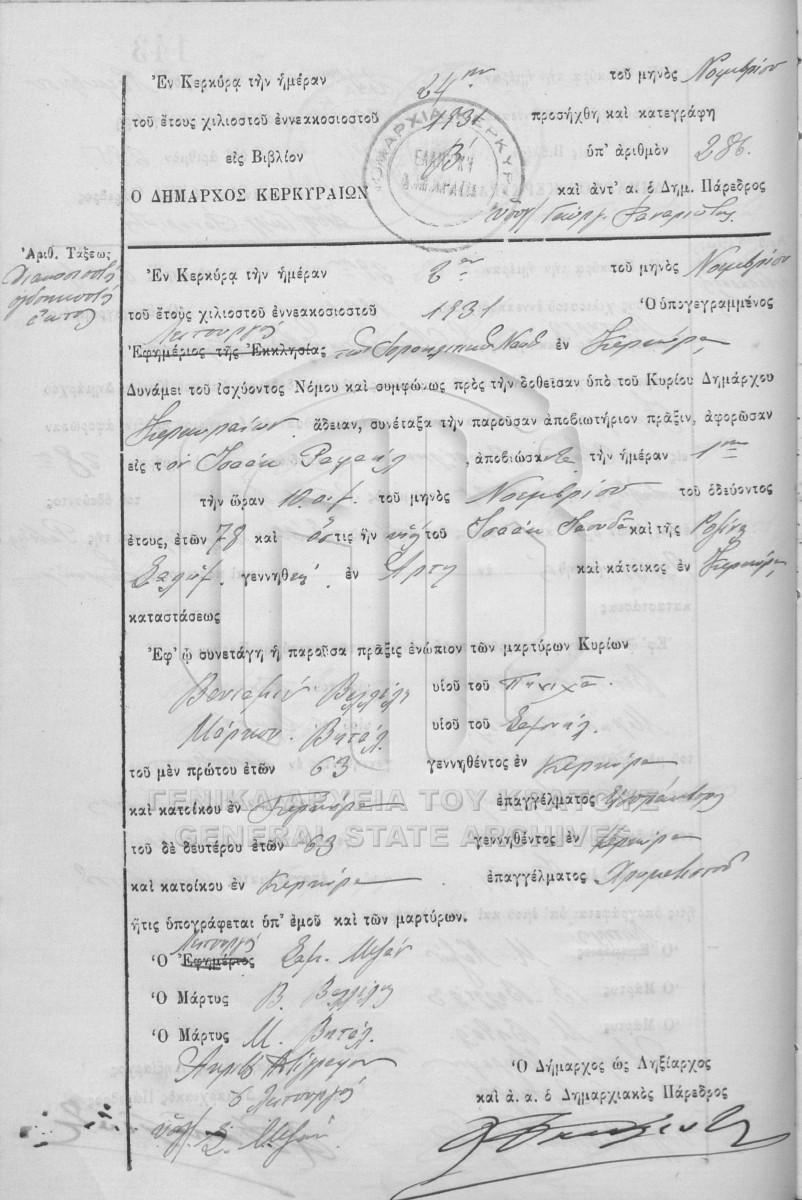 Ἐν Κερκύρᾳ τὴν ἡμέραν 24ην τοῦ μηνὸς Νοεμβρίου
τοῦ ἔτους χιλιοστοῦ ἐννεακοσιοστοῦ 1931 προσήχθη καὶ κατεγράφη
εἰς Βιβλίον 3 ὑπ' ἀριθμὸν 286.
Ο ΔΗΜΑΡΧΟΣ ΚΕΡΚΥΡΑΙΩΝ καὶ ἀντ' α. ὁ Δημ. Πάρεδρος
Γεώργ.
Ἀριθ. Τάξεως
Διακοσιοστὴ
ὀγδοηκοστὴ
ἕκτη
Ἐν Κερκύρᾳ τὴν ἡμέραν 2αν τοῦ μηνὸς Νοεμβρίου
τοῦ ἔτους χιλιοστοῦ ἐννεακοσιοστοῦ 1931 Ὁ ὑπογεγραμμένος
Λειτουργὸς
Ἐφημέριος τῆς Ἐκκλησίας τοῦ Ἰσραηλιτικοῦ Ναοῦ ἐν Κερκύρᾳ
Δυνάμει τοῦ ἰσχύοντος Νόμου καὶ συμφώνως πρὸς τὴν δοθεῖσαν ὑπὸ τοῦ Κυρίου Δημάρχου
Κερκυραίων ἄδειαν, συνέταξα τὴν παροῦσαν ἀποβιωτήριον πρᾶξιν, ἀφορῶσαν
εἰς τὸν Ἰσαὰκ Ραφαὴλ, ἀποβιώσαντα τὴν ἡμέραν 1ην
τὴν ὥραν 10 τοῦ μηνὸς Νοεμβρίου τοῦ ὁδεύοντος
ἔτους, ἐτῶν 78 καὶ ὅστις ἦν υἱὸς τοῦ Ἰσαὰκ καὶ τῆς
γεννηθεὶς ἐν Ἄρτῃ καὶ κάτοικος ἐν Κερκύρᾳ
καταστάσεως
Ἐφ' ᾧ συνετάγη ἡ παροῦσα πρᾶξις ἐνώπιον τῶν μαρτύρων Κυρίων
Βενιαμὶν Βελλέλη υἱοῦ τοῦ
Μάρκου Βιτὰλ υἱοῦ τοῦ Σαμουὴλ
τοῦ μὲν πρώτου ἐτῶν 63 γεννηθέντος ἐν Κερκύρᾳ
καὶ κατοίκου ἐν Κερκύρᾳ ἐπαγγέλματος
τοῦ δὲ δευτέρου ἐτῶν 63 γεννηθέντος ἐν Κερκύρᾳ
καὶ κατοίκου ἐν Κερκύρᾳ ἐπαγγέλματος
ἥτις ὑπογράφεται ὑπ' ἐμοῦ καὶ τῶν μαρτύρων.
Λειτουργὸς
Ὁ Ἐφημέριος Σαμ. Μιζὰν
Ὁ Μάρτυς Β. Βελλέλης
Ὁ Μάρτυς Μ. Βιτὰλ
Ἀκριβὲς Ἀντίγραφον
ὁ Λειτουργὸς
Σ. Μιζὰν
Ὁ Δήμαρχος ὡς Ληξίαρχος
καὶ ἀ. α. ὁ Δημαρχιακὸς Πάρεδρος
ΓΕΝΙΚΑ ΑΡΧΕΙΑ ΤΟΥ ΚΡΑΤΟΥΣ
GENERAL STATE ARCHIVES